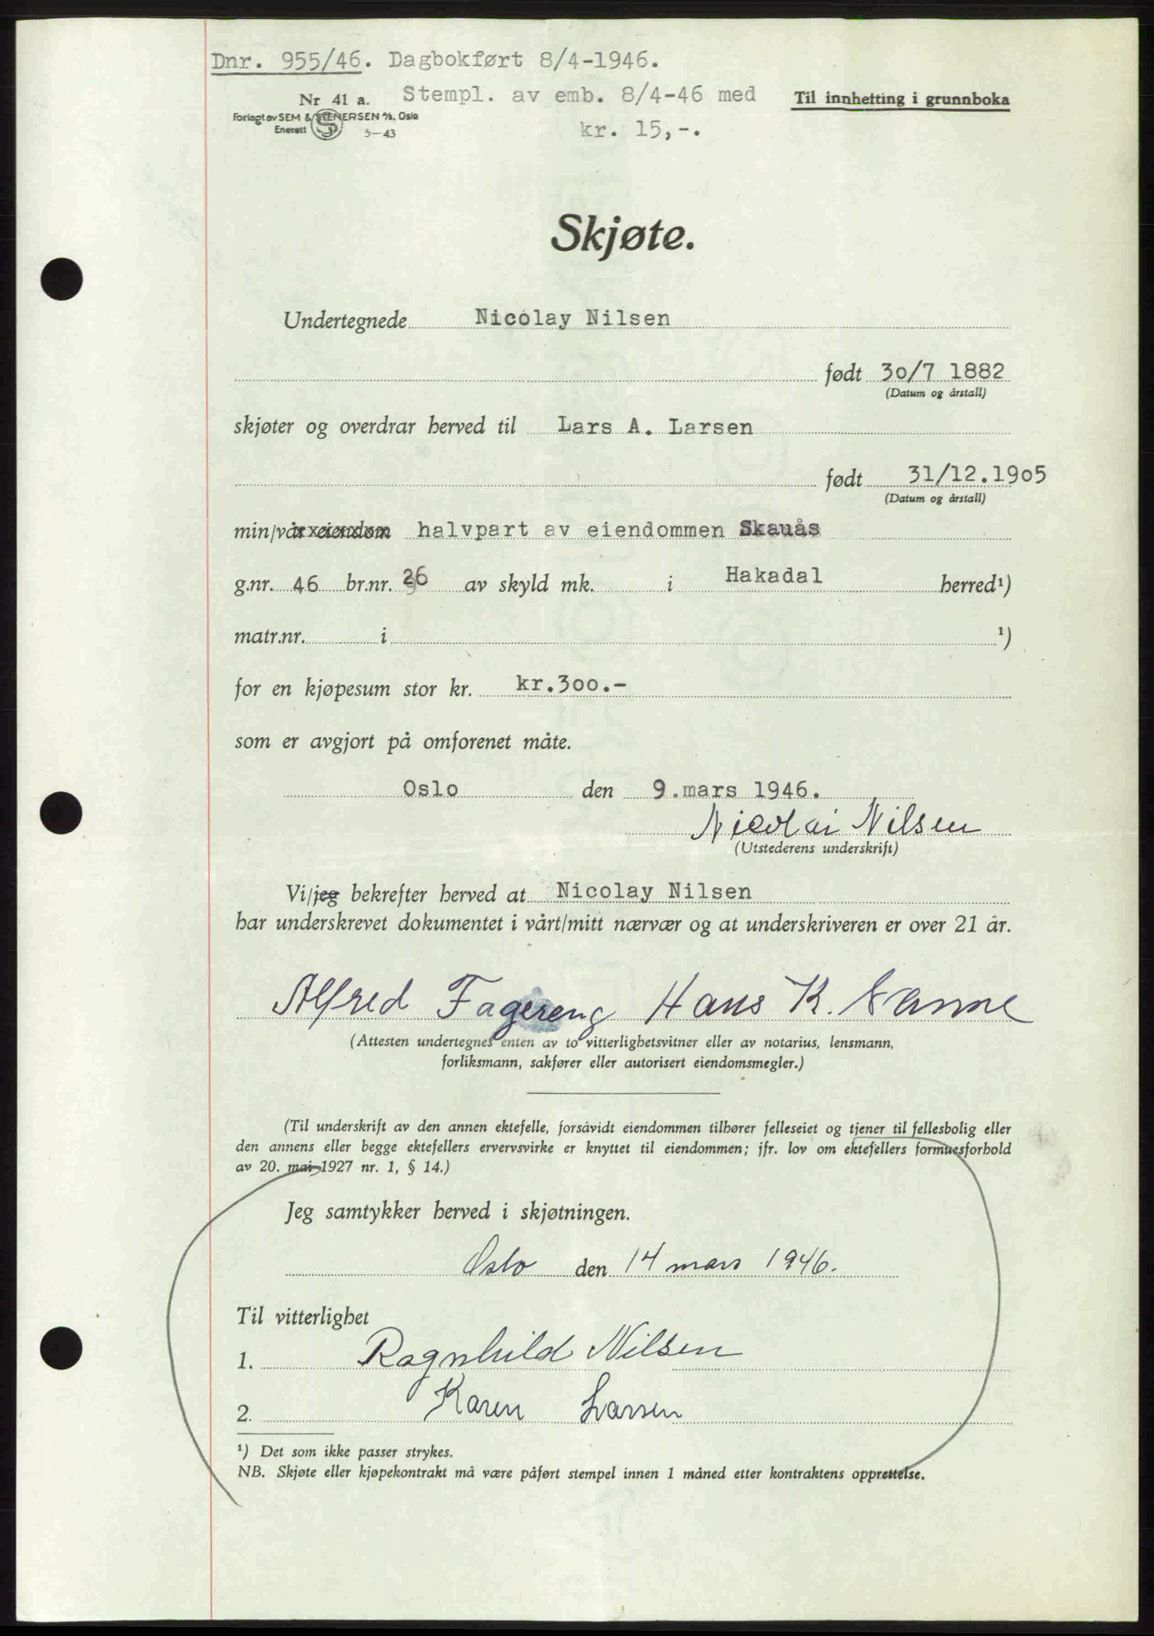 Dnr. 955/46. Dagbokført 8/4-1946.
Nr 41 a. Stempl. av emb. 8/4-46 med Til innhefting i grunnboka
Forlagt av SEM & STENERSEN A/S, Oslo
Enerett 5—43 kr. 15,-.
Skjøte.
Undertegnede Nicolay Nilsen
født 30/7 1882
(Datum og årstall)
skjøter og overdrar herved til Lars A. Larsen
født 31/12.1905
(Datum og årstall)
min/vår eiendom halvpart av eiendommen Skauås
g.nr. 46 br.nr. 26 av skyld mk. i Hakadal herred¹)
matr.nr. i ¹)
for en kjøpesum stor kr. kr.300.-
som er avgjort på omforenet måte.
Oslo den 9.mars 1946.
Nicolai Nilsen
(Utstederens underskrift)
Vi/jeg bekrefter herved at Nicolay Nilsen
har underskrevet dokumentet i vårt/mitt nærvær og at underskriveren er over 21 år.
Alfred Fagereng Hans K.
(Attesten undertegnes enten av to vitterlighetsvitner eller av notarius, lensmann,
forliksmann, sakfører eller autorisert eiendomsmegler.)
(Til underskrift av den annen ektefelle, forsåvidt eiendommen tilhører felleseiet og tjener til fellesbolig eller
den annens eller begge ektefellers ervervsvirke er knyttet til eiendommen; jfr. lov om ektefellers formuesforhold
av 20. mai 1927 nr. 1, § 14.)
Jeg samtykker herved i skjøtningen.
Oslo den 14 mars 1946.
Til vitterlighet
1. Ragnhild Nilsen
2. Karen Larsen
¹) Det som ikke passer strykes.
NB. Skjøte eller kjøpekontrakt må være påført stempel innen 1 måned etter kontraktens opprettelse.